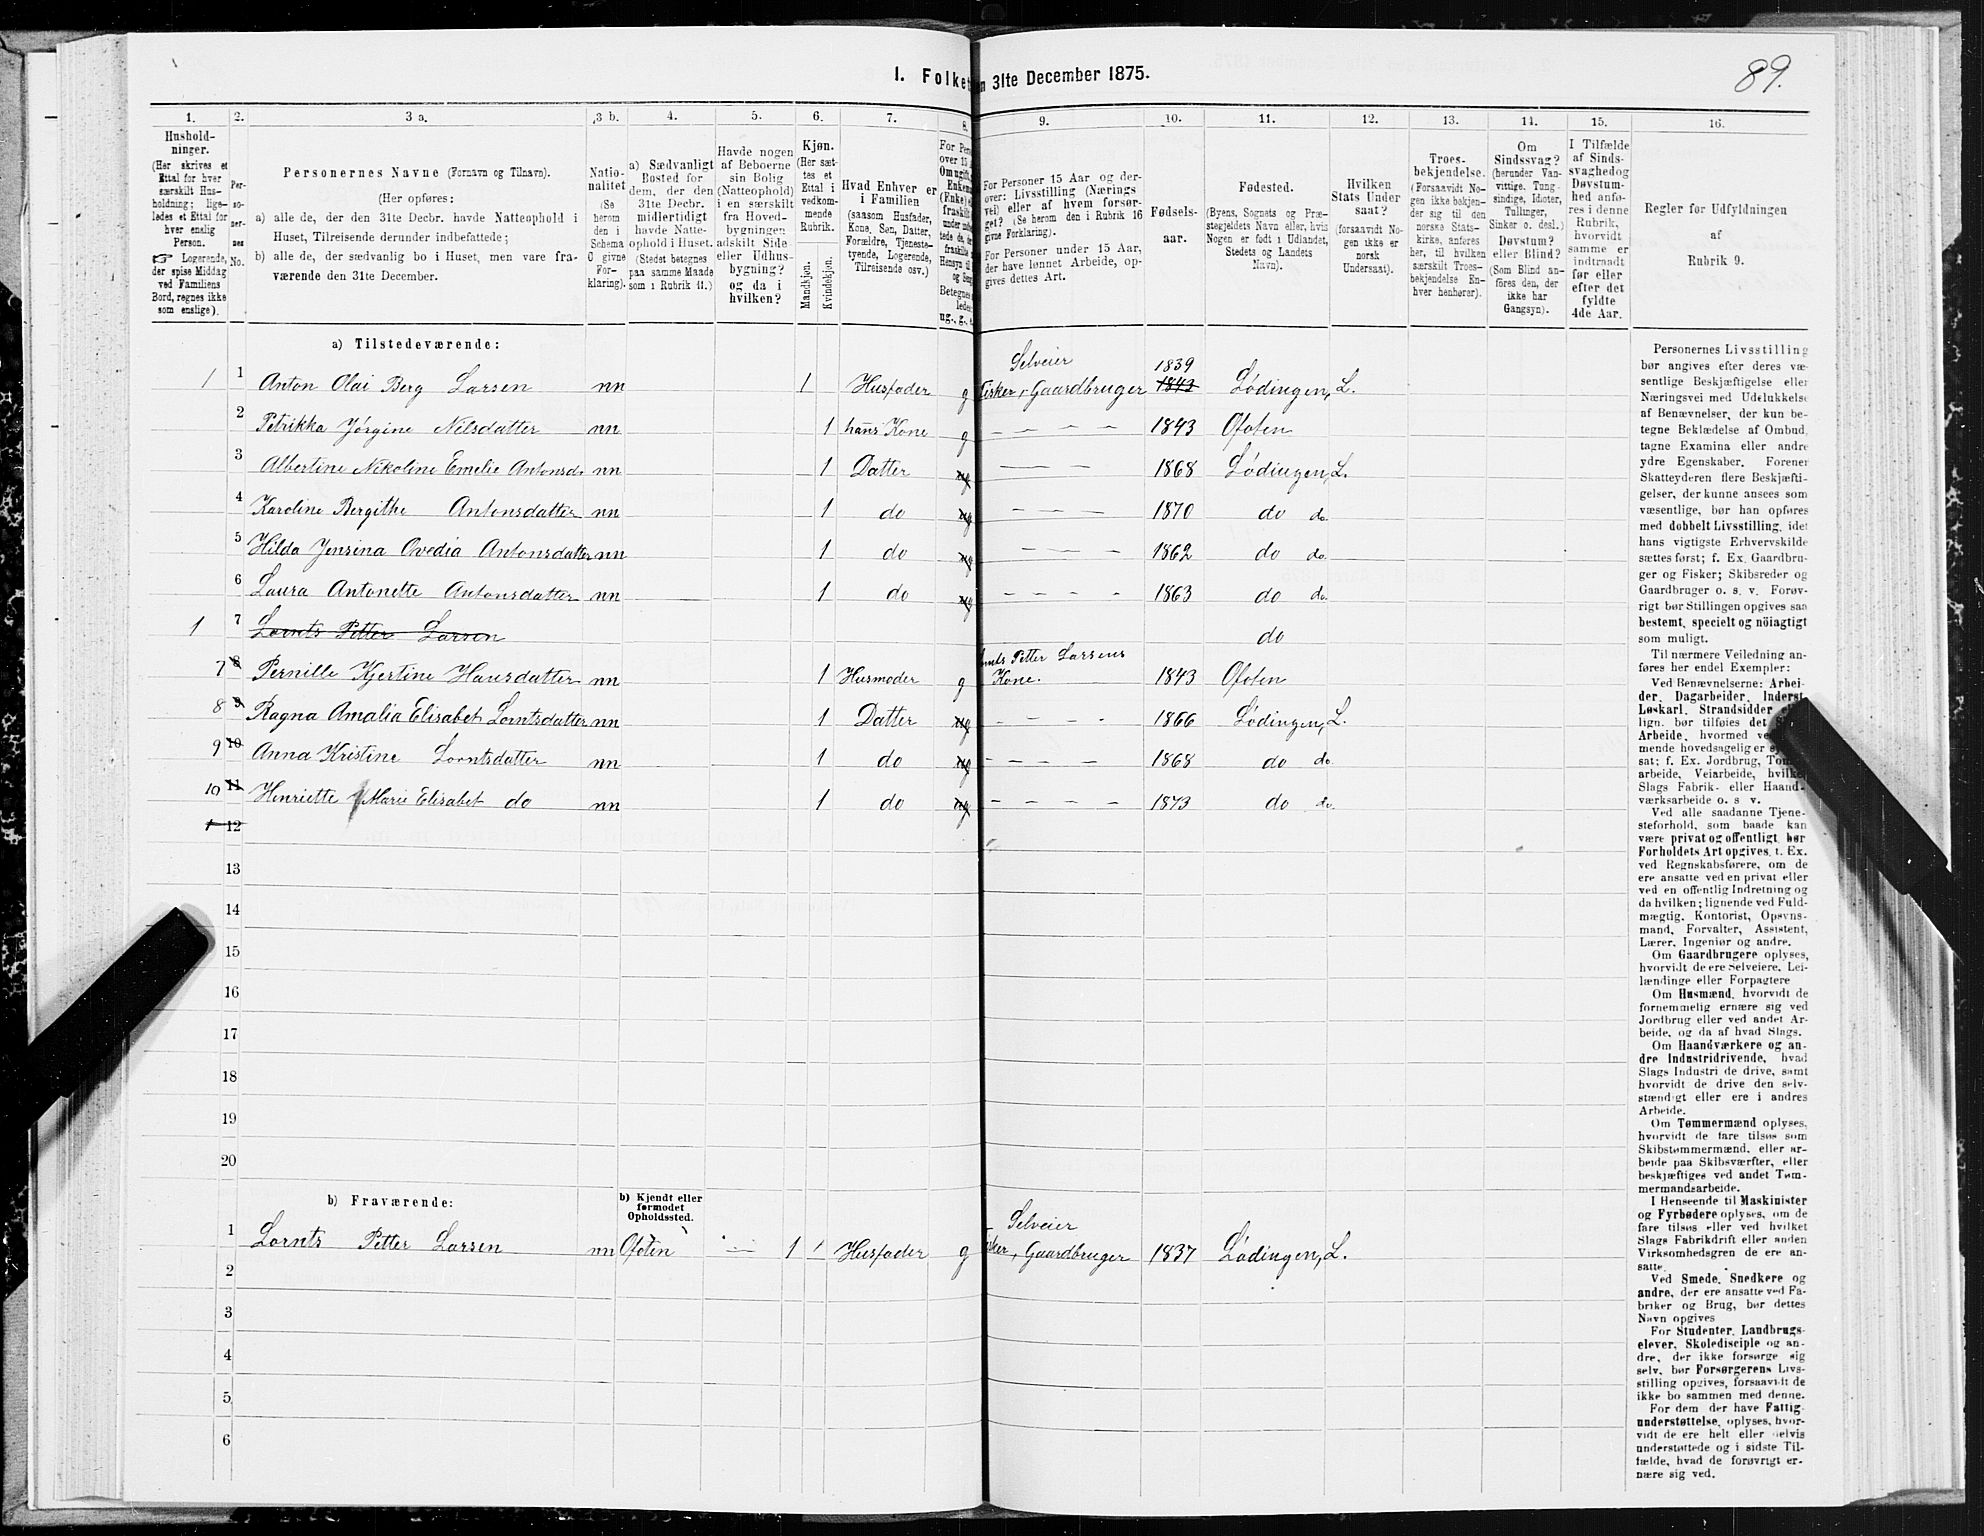 89.
I. Folket
n 31te December 1875.
1. 2. 3 a. 3 b. 4. 5. 6. 7. 8. 9. 10. 11. 12. 13. 14. 15. 16.
Hushold-
ninger.
(Her skrives et
Ettal for hver
særskilt Hus-
holdning; lige-
ledes et Ettal for
hver enslig
Person.
☞ Logerende,
der spise Middag
ved Familiens
Bord, regnes ikke
som enslige).
Per-
so-
ner-
nes
No.
Personernes Navne (Fornavn og Tilnavn).
(Her opføres:
a) alle de, der den 31te Decbr. havde Natteophold i
Huset, Tilreisende derunder indbefattede;
b) alle de, der sædvanlig bo i Huset, men vare fra-
værende den 31te December.
Natio-
nalitet
(Se
herom
den i
Schema
O givne
For-
klaring).
a) Sædvanligt
Bosted for
dem, der den
31te Decbr.
midlertidigt
havde Natte-
ophold i Huset.
(Stedet betegnes
paa samme Maade
som i Rubrik 11.)
Havde nogen
af Beboerne
sin Bolig
(Natteophold)
i en særskilt
fra Hoved-
bygningen
adskilt Side
eller Udhus-
bygning?
og da i
hvilken?
Kjøn.
(Her sæt-
tes et
Ettal i
vedkom-
mende
Rubrik.
Mandkjøn.
Kvindekjøn.
Hvad Enhver er
i Familien
(saasom Husfader,
Kone, Søn, Datter,
Forældre, Tjeneste-
tyende, Logerende,
Tilreisende osv.)
For Pers
over 15 a
Om ugift,
Enkem
(Enke) e
fraskilt
Hensyn til
og Seng
Betegnes
ledes
ug., g., e.
For Personer 15 Aar og der-
over: Livsstilling (Nærings
vei) eller af hvem forsør-
get? (Se herom den i Rubrik 16
givne Forklaring).
For Personer under 15 Aar,
der have lønnet Arbeide, op-
gives dettes Art.
Fødsels-
aar.
Fødested.
(Byens, Sognets og Præ-
stegjeldets Navn eller, hvis
Nogen er født i Udlandet,
Stedets og Landets
Navn).
Hvilken
Stats Under
saat?
(forsaavidt No-
gen ikke er
norsk
Undersaat).
Troes-
bekjendelse.
(Forsaavidt No-
gen ikke bekjen-
der sig til den
norske Stats-
kirke, anføres
her, til hvilken
særskilt Troes-
bekjendelse En-
hver henhører).
Om
Sindssvag?
(herunder Van-
vittige, Tung-
sindige, Idioter,
Tullinger,
Sinker o. desl.)
Døvstum?
eller Blind?
(Som Blind an-
føres den, der
ikke har
Gangsyn).
I Tilfælde
af Sinds-
svaghed og
Døvstum-
hed anfø-
res i denne
Rubrik,
hvorvidt
samme er
indtraadt
før eller
efter det
fyldte
4de Aar.
Regler for Udfyldningen
af
Rubrik 9.
a) Tilstedeværende:
Selveier 1839
1 1 Anton Olai Berg Larsen nn 1 Husfader g Fisker, Gaardbruger 1843 Lødingen, L.
2 Petrikka Jørgine Nilsdatter nn 1 hans Kone g — — — — 1843 Ofoten
3 Albertine Nikoline Emelie Antonsd. nn 1 Datter ug — — — 1868 Lødingen, L.
4 Karoline Bergithe Antonsdatter nn 1 do ug — — — — 1870 do do.
5 Hilda Jensina Ovedia Antonsdatter nn 1 do ug — — — 1862 do do.
6 Laura Antonette Antonsdatter nn 1 do ug — — — — 1863 do do.
1 7 Lornts Petter Larsen do
7 8 Pernille Kjertine Hansdatter nn 1 Husmoder g Lornts Petter Larsens Kone. 1843 Ofoten
8 9 Ragna Amalia Elisabet Lorntsdatter nn 1 Datter ug — — — — 1866 Lødingen, L.
9 10 Anna Kristine Lorntsdatter nn 1 do ug — — — — 1868 do do.
10 11 Henriette Marie Elisabet do nn 1 do ug — — — — 1873 do do.
1 12
13
14
15
16
17
18
19
20
b) Fraværende:
b) Kjendt eller
formodet
Opholdssted.
Selveier
1 Lornts Petter Larsen nn Ofoten — 1 1 Husfader g Fisker, Gaardbruger 1837 Lødingen, L.
2
3
4
5
6
Personernes Livsstilling
bør angives efter deres væ-
sentlige Beskjæftigelse eller
Næringsvei med Udelukkelse
af Benævnelser, der kun be-
tegne Beklædelse af Ombud,
tagne Examina eller andre
ydre Egenskaber. Forener
Skatteyderen flere Beskjæfti-
gelser, der kunne ansees som
væsentlige, bør han opføres
med dobbelt Livsstilling, idet
hans vigtigste Erhvervskilde
sættes først; f. Ex. Gaardbru-
ger og Fisker; Skibsreder og
Gaardbruger o. s. v. Forøv-
rigt bør Stillingen opgives saa
bestemt, specielt og nöiagtigt
som muligt.
Til nærmere Veiledning an-
føres her endel Exempler:
Ved Benævnelserne: Arbei-
der, Dagarbeider, Inderst,
Løskarl, Strandsidder
lign. bør tilføies det
Arbeide, hvormed
mende hovedsagelig er
sat; f. Ex. Jordbrug,
arbeide, Veiarbeide, hvilket
Slags Fabrik- eller Haand-
værksarbeide o. s. v.
Ved alle saadanne Tjene-
steforhold, som baade kan
være privat og offentligt, bør
Forholdets Art opgives, t. Ex.
ved Regnskabsførere, om de
ere ansatte ved en privat eller
ved en offentlig Indretning og
da hvilken; lignende ved Fuld-
mægtig, Kontorist, Opsyns-
mand, Forvalter, Assistent,
Lærer, Ingeniør og andre.
Om Gaardbrugere oplyses,
hvorvidt de ere Selveiere, Lei-
lændinge eller Forpagtere
Om Husmænd, hvorvidt de
fornemmelig ernære sig ved
Jordbrug eller ved andet Ar-
beide, og da af hvad Slags.
Om Haandværkere og an-
dre Industridrivende, hvad
Slags Industri de drive, samt
hvorvidt de drive den selv-
stændigt eller ere i andres
Arbeide.
Om Tømmermænd oplyses,
hvorvidt de fare tilsøs som
Skibstømmermænd, eller ar-
beide paa Skibsværfter, eller
beskjæftiges ved andet Tøm-
mermandsarbeide.
I Henseende til Maskinister
og Fyrbødere oplyses, om de
fare tilsøs eller ved hvilket
Slags Fabrikdrift eller anden
Virksomhedsgren de ere an-
satte.
Ved Smede, Snedkere og
andre, der ere ansatte ved Fa-
briker og Brug, bør dettes
Navn opgives
For Studenter, Landbrugs-
elever, Skoledisciple og an-
dre, der ikke forsørge sig
selv, bør Forsørgerens Livs-
stilling opgives, forsaavidt de
ikke bo sammen med denne.
For dem der have Fattig-
understøttelse, oplyses, hvor-
vidt de ere helt eller delvis
understøttede og i sidste Til-
fælde, hvad de forøvrigt er-
nære sig ved.